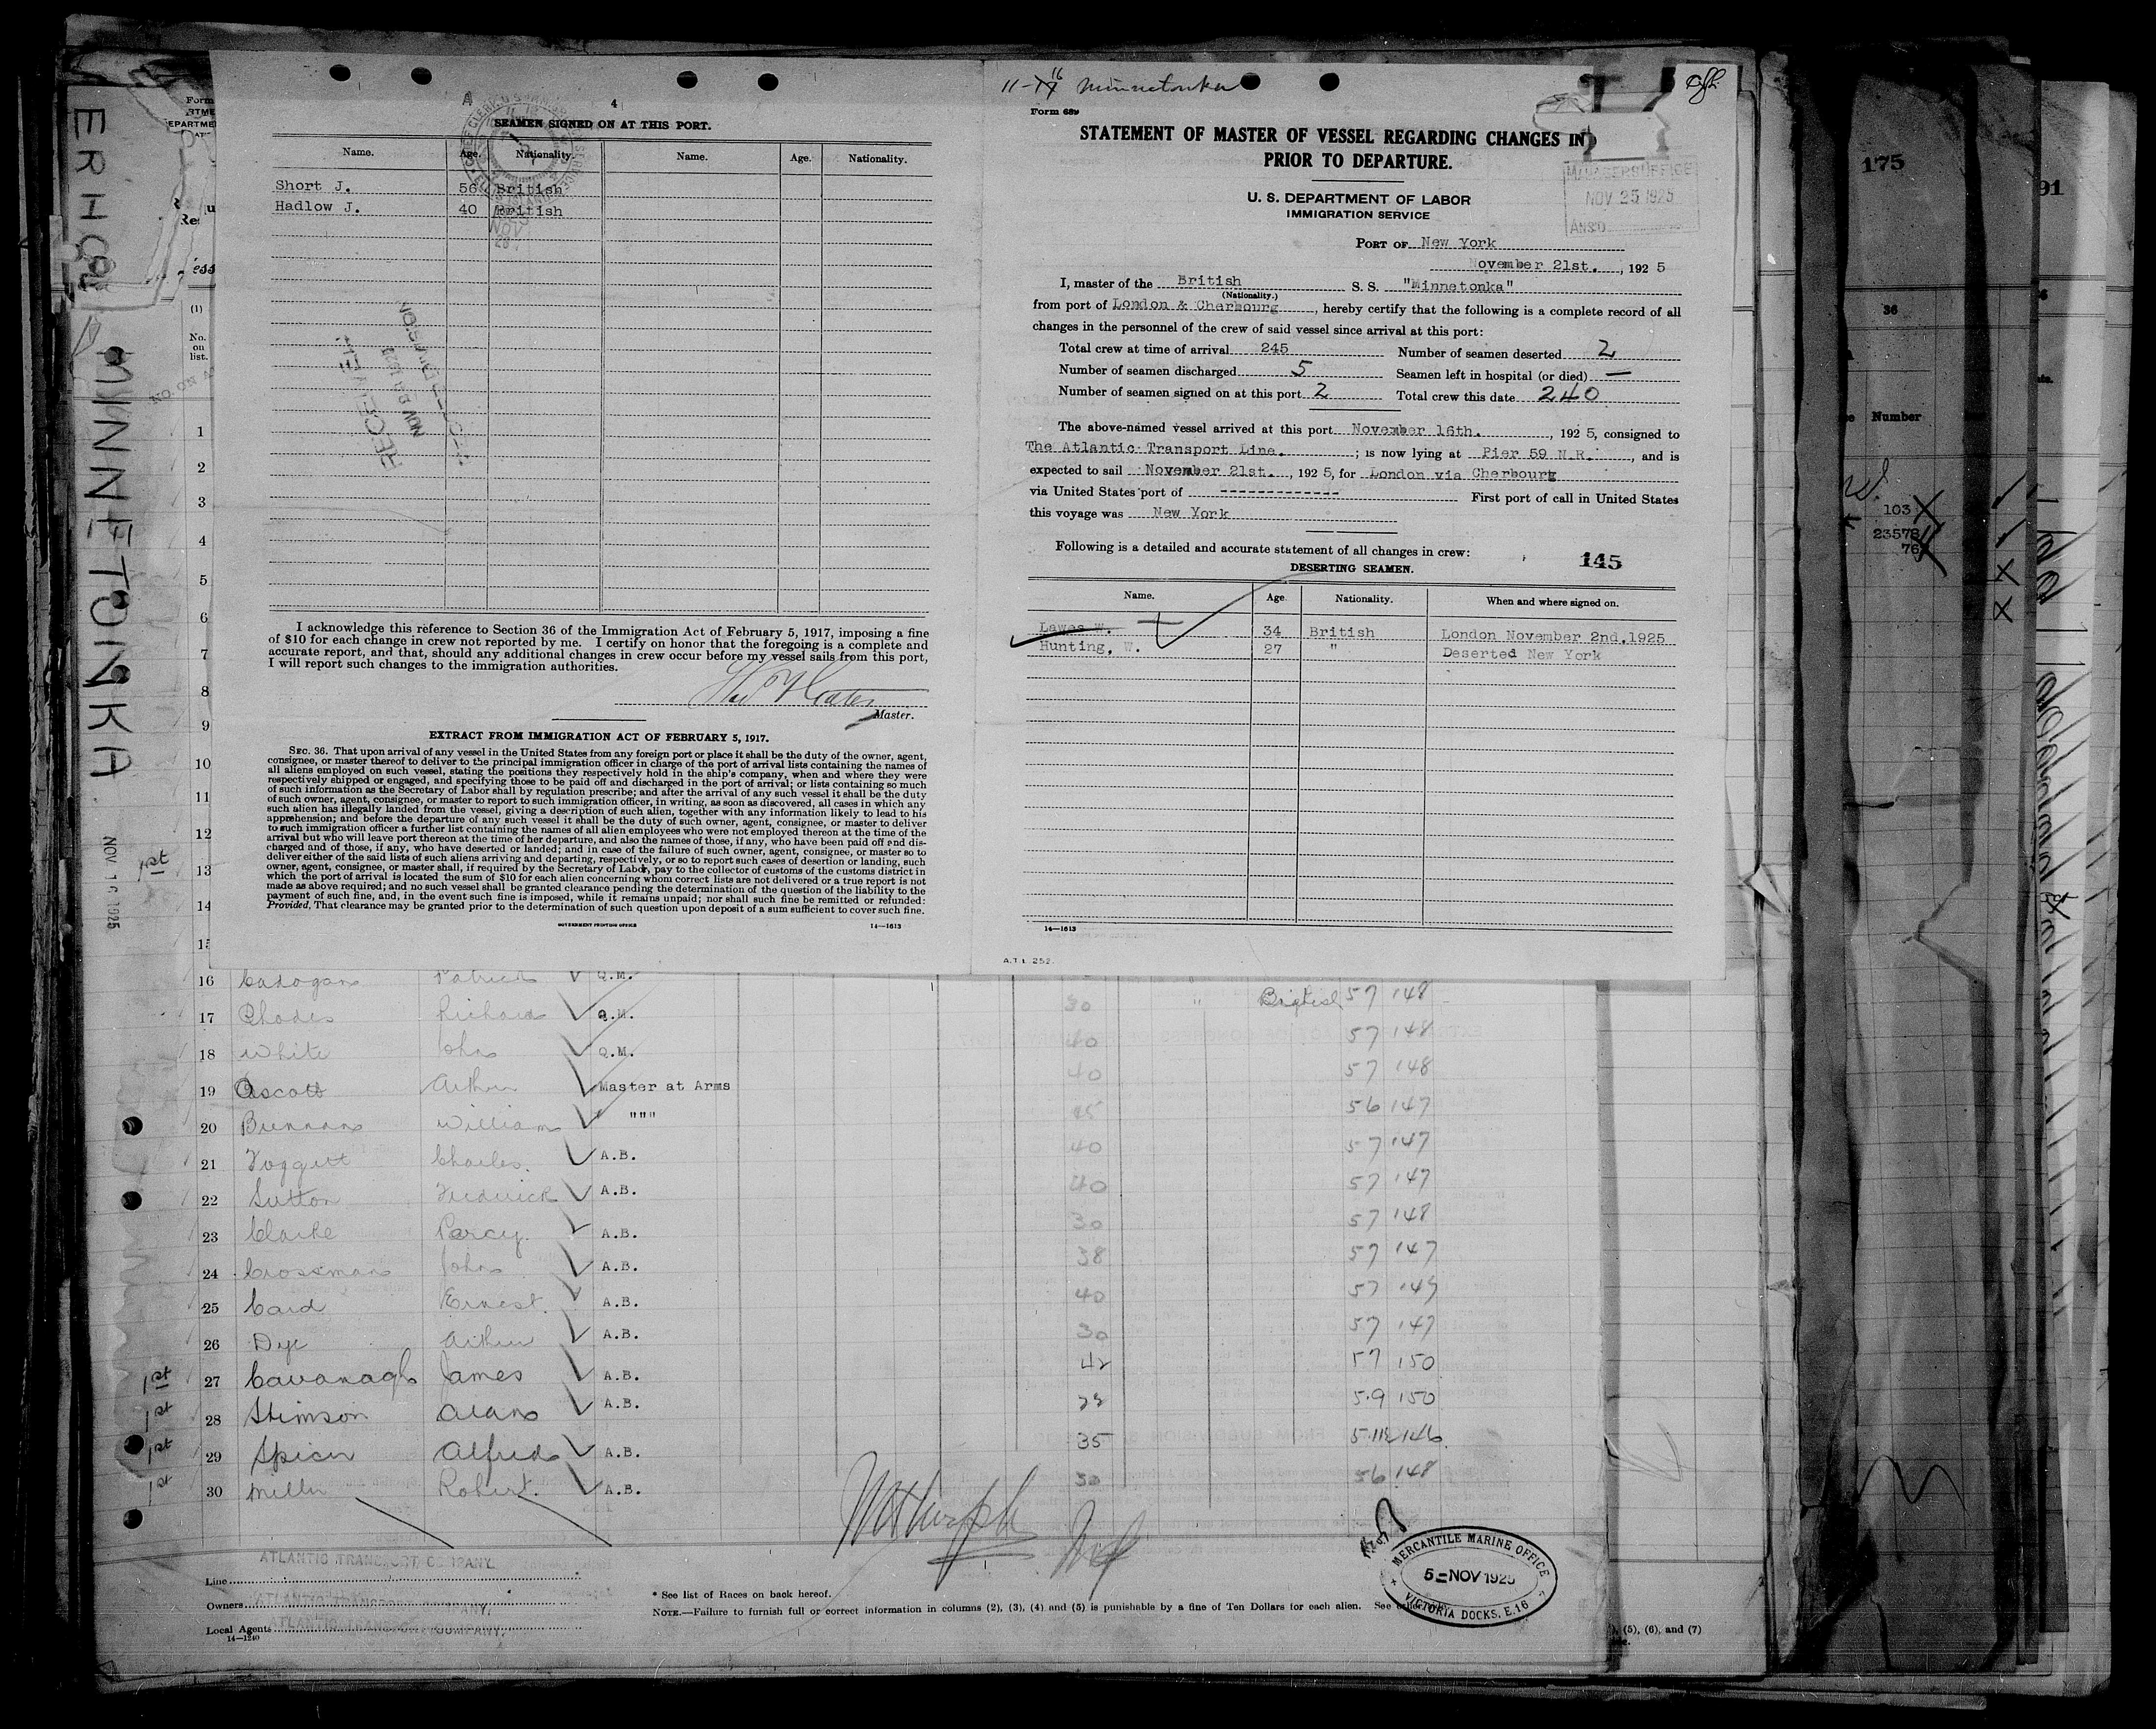 ERHQ
MINNETONKA
NOV 16 1925
4
SEAMEN SIGNED ON AT THIS PORT.
Name. Age. Nationality. Name. Age. Nationality.
Short J. 56 British
Hadlow J. 40 British
RECEIVED
I acknowledge this reference to Section 36 of the Immigration Act of February 5, 1917, imposing a fine
of $10 for each change in crew not reported by me. I certify on honor that the foregoing is a complete and
accurate report, and that, should any additional changes in crew occur before my vessel sails from this port,
I will report such changes to the immigration authorities.
Master.
EXTRACT FROM IMMIGRATION ACT OF FEBRUARY 5, 1917.
SEC. 36. That upon arrival of any vessel in the United States from any foreign port or place it shall be the duty of the owner, agent,
consignee, or master thereof to deliver to the principal immigration officer in charge of the port of arrival lists containing the names of
all aliens employed on such vessel, stating the positions they respectively hold in the ship's company, when and where they were
respectively shipped or engaged, and specifying those to be paid off and discharged in the port of arrival; or lists containing so much
of such information as the Secretary of Labor shall by regulation prescribe; and after the arrival of any such vessel it shall be the duty
of such owner, agent, consignee, or master to report to such immigration officer, in writing, as soon as discovered, all cases in which any
such alien has illegally landed from the vessel, giving a description of such alien, together with any information likely to lead to his
apprehension; and before the departure of any such vessel it shall be the duty of such owner, agent, consignee, or master to deliver
to such immigration officer a further list containing the names of all alien employees who were not employed thereon at the time of the
arrival but who will leave port thereon at the time of her departure, and also the names of those, if any, who have been paid off and dis-
charged and of those, if any, who have deserted or landed; and in case of the failure of such owner, agent, consignee, or master so to
deliver either of the said lists of such aliens arriving and departing, respectively, or so to report such cases of desertion or landing, such
owner, agent, consignee, or master shall, if required by the Secretary of Labor, pay to the collector of customs of the customs district in
which the port of arrival is located the sum of $10 for each alien concerning whom correct lists are not delivered or a true report is not
made as above required; and no such vessel shall be granted clearance pending the determination of the question of the liability to the
payment of such fine, and, in the event such fine is imposed, while it remains unpaid; nor shall such fine be remitted or refunded:
Provided, That clearance may be granted prior to the determination of such question upon deposit of a sum sufficient to cover such fine.
GOVERNMENT PRINTING OFFICE 14—1613
11-16 Minnetonka
Form 689
STATEMENT OF MASTER OF VESSEL REGARDING CHANGES IN
PRIOR TO DEPARTURE.
U. S. DEPARTMENT OF LABOR
IMMIGRATION SERVICE
MANAGERS OFFICE
NOV 25 1925
ANS'D
PORT OF New York
November 21st., 1925
I, master of the British S. S. "Minnetonka"
(Nationality.)
from port of London & Cherbourg, hereby certify that the following is a complete record of all
changes in the personnel of the crew of said vessel since arrival at this port:
Total crew at time of arrival 245 Number of seamen deserted 2
Number of seamen discharged 5 Seamen left in hospital (or died) —
Number of seamen signed on at this port 2 Total crew this date 240
The above-named vessel arrived at this port November 16th., 1925, consigned to
The Atlantic Transport Line.; is now lying at Pier 59 N.R., and is
expected to sail November 21st., 1925, for London via Cherbourg
via United States port of ------------- First port of call in United States
this voyage was New York
Following is a detailed and accurate statement of all changes in crew: 145
DESERTING SEAMEN.
Name. Age. Nationality. When and where signed on.
Lawes W. 34 British London November 2nd.1925
Hunting, W. 27 " Deserted New York
14—1613
A.T.L. 252.
(1)
No.
on
list.
1
2
3
4
5
6
7
8
9
10
11
12
1st 13
14
15
16 Cadogan Patrick Q.M.
17 Rhodes Richard Q.M. 30 " British 57 148
18 White John Q.M. 40 57 148
19 Ascott Arthur Master at Arms 40 57 148
20 Brennan William " """ 45 56 147
21 Foggett Charles. A.B. 40 57 147
22 Sutton Frederick A.B. 40 57 147
23 Clarke Percy. A.B. 30 57 148
24 Crossman John A.B. 38 57 147
25 Card Ernest. A.B. 40 57 149
26 Dye Arthur A.B. 30 57 147
1st 27 Cavanagh James A.B. 42 57 150
1st 28 Stimson Alan A.B. 5.9 150
1st 29 Spicer Alfred A.B. 35 5.11½ 146
1st 30 Miller Robert. A.B. 30 56 148
Line ATLANTIC TRANSPORT COMPANY.
Owners ATLANTIC TRANSPORT COMPANY.
Local Agents ATLANTIC TRANSPORT COMPANY.
14—1240
* See list of Races on back hereof.
NOTE.—Failure to furnish full or correct information in columns (2), (3), (4) and (5) is punishable by a fine of Ten Dollars for each alien. See
MERCANTILE MARINE OFFICE
5 - NOV 1925
VICTORIA DOCKS, E.16
, (5), (6), and (7)
175
36
Number
103
23578
76
91